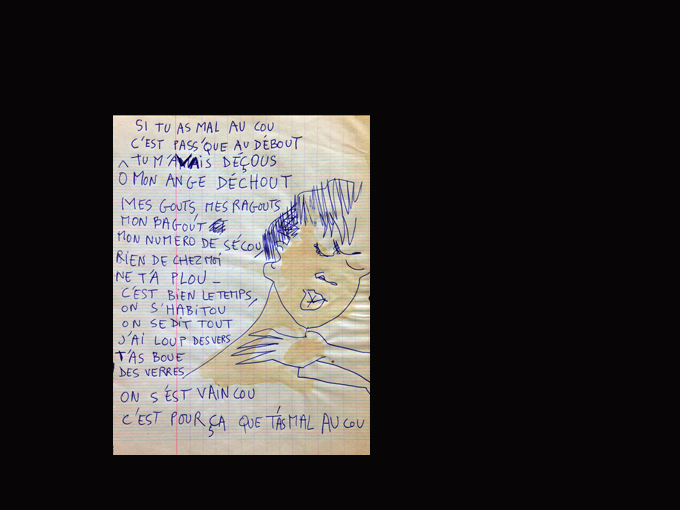 SI TU AS MAL AU COU
C'EST PASS'QUE AU DÉBOUT
TU M'AVAIS DÉÇOUS
Ô MON ANGE DÉCHOUT
MES GOUTS MES RAGOUTS
MON BAGOÛT
MON NUMERO DE SÉCOU
RIEN DE CHEZ MOI
NE T'A PLOU _
C'EST BIEN LE TEMPS,
ON S'HABITOU
ON SE DIT TOUT
J'AI LOUP DES VERS
T'AS BOUE
DES VERRES
ON S'EST VAINCOU
C'EST POUR ÇA QUE T'AS MAL AU COU